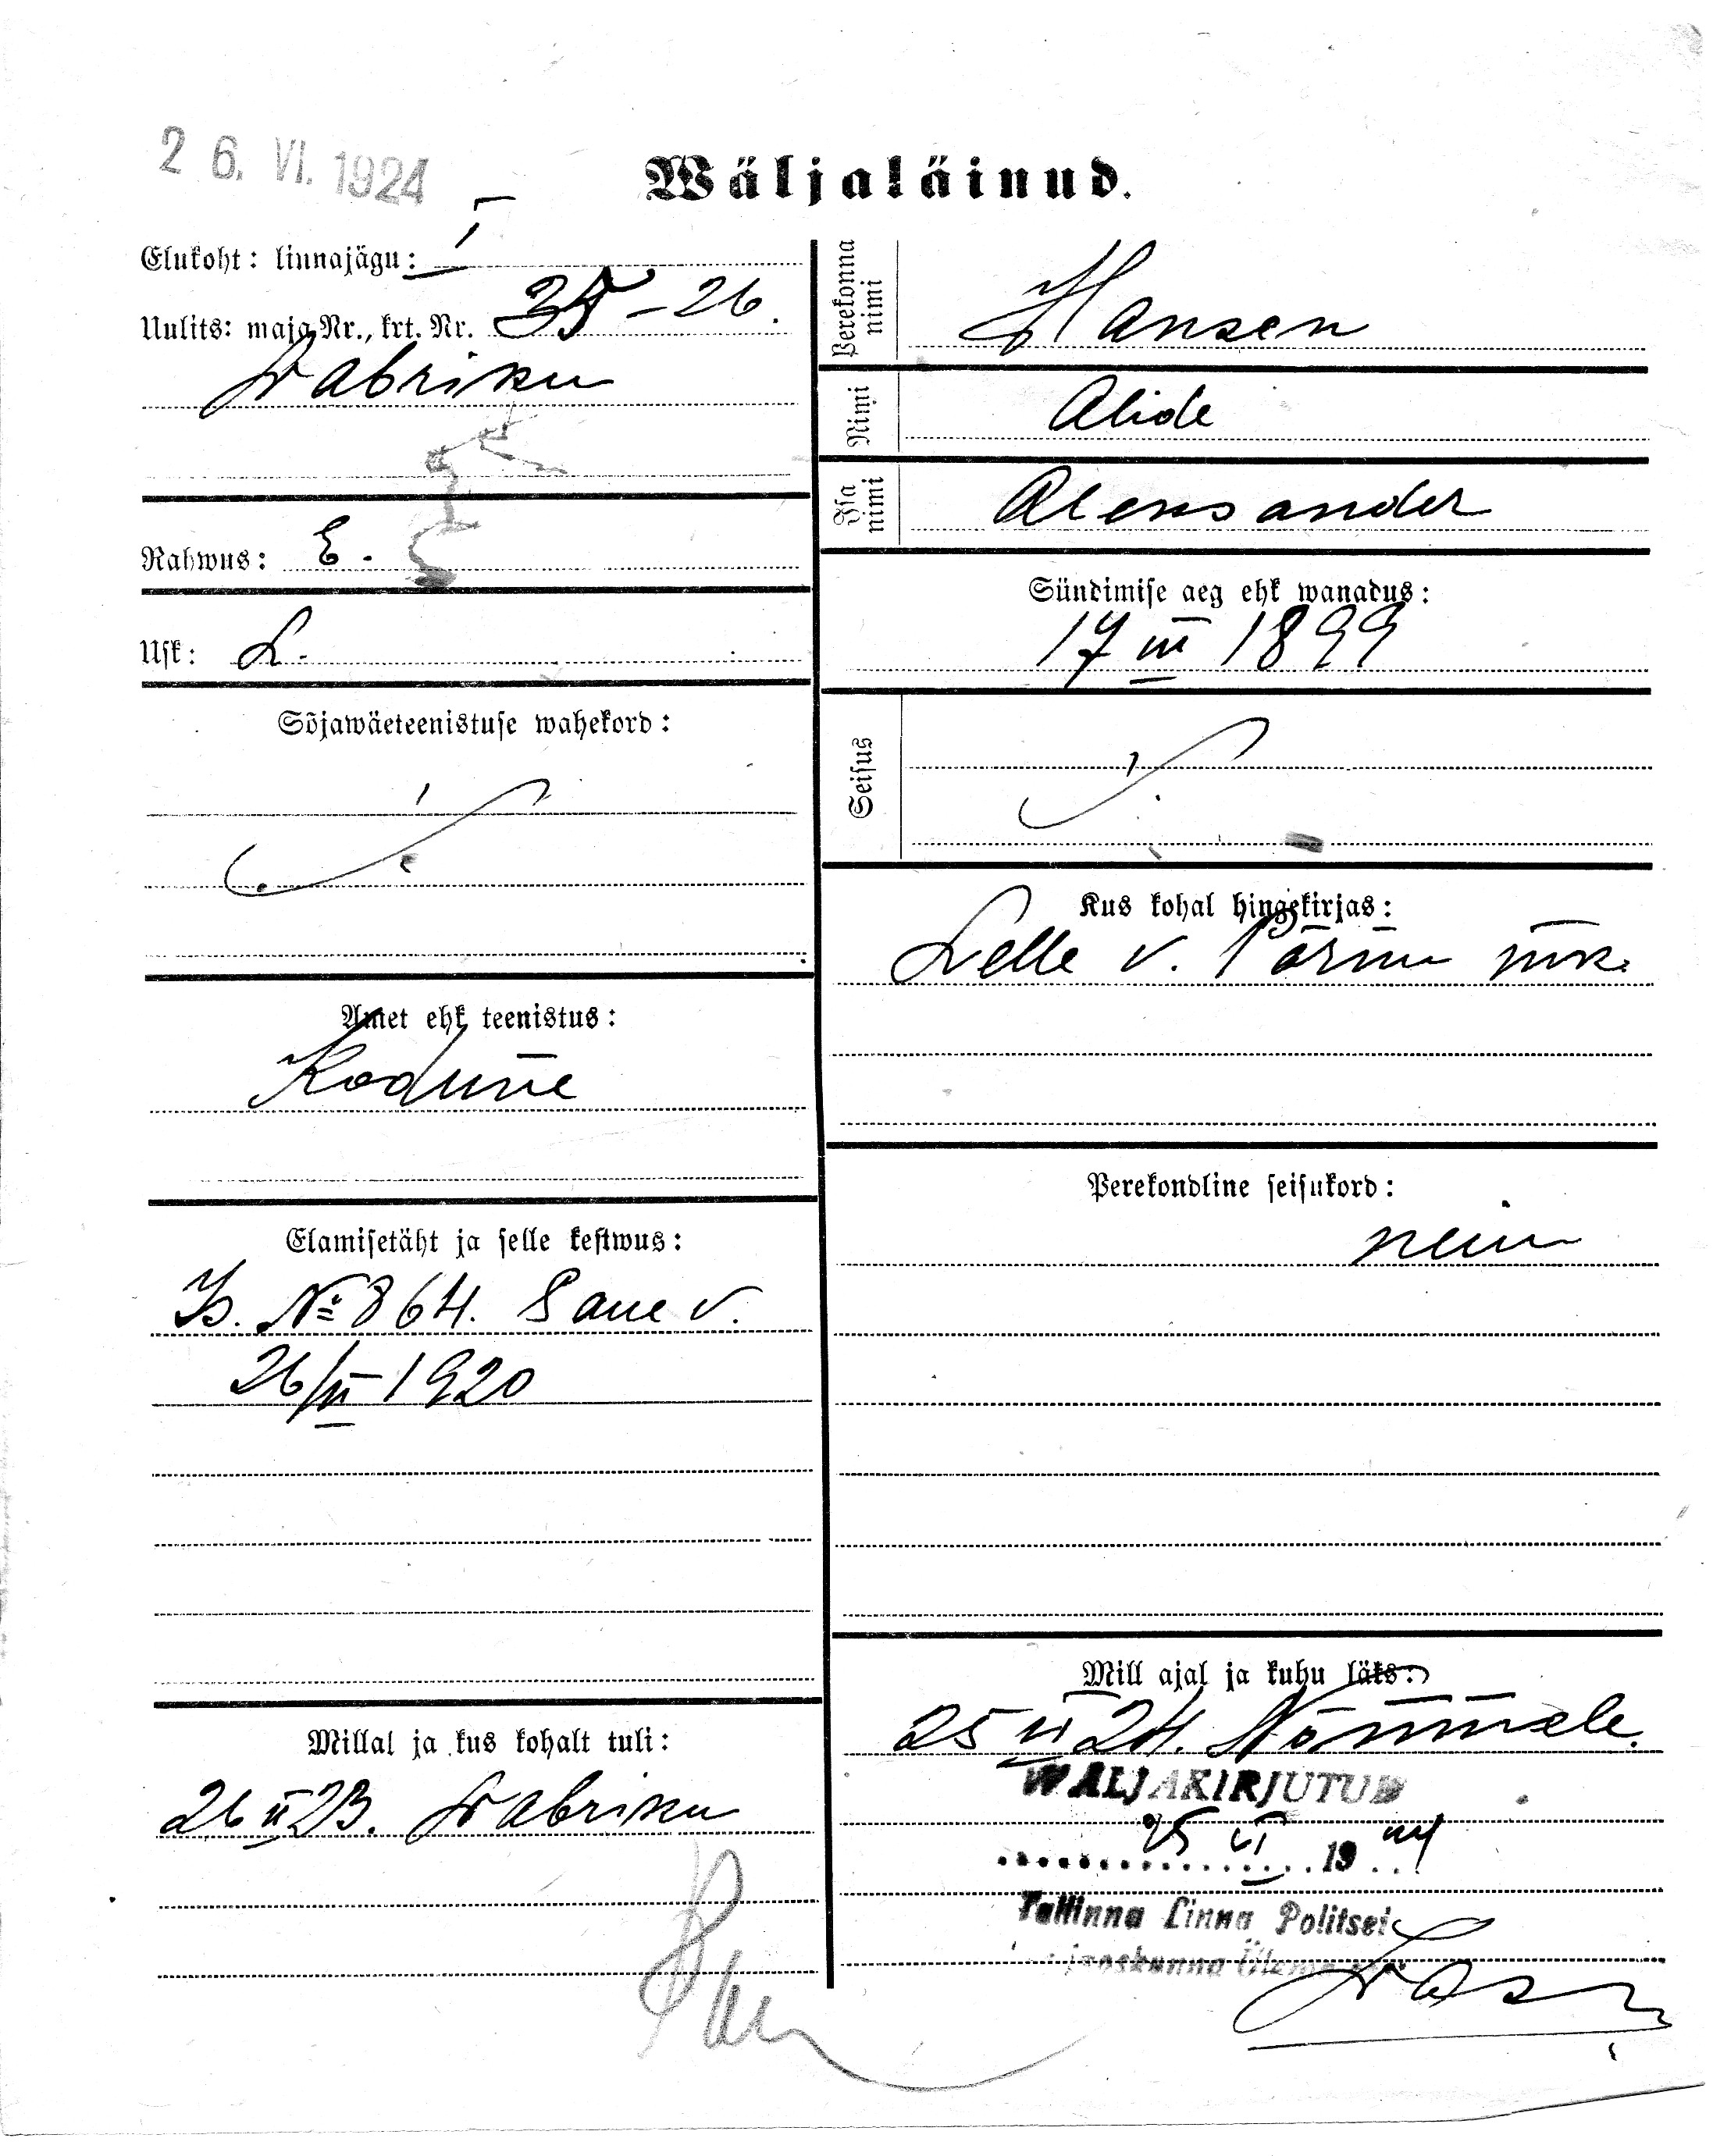 26. VI. 1924
Wäljaläinud.
Elukoht: linnajägu: I
Uulits: maja Nr., krt. Nr. 35-26.
Wabriku
Rahwus: E.
Usk: L.
Sõjawäeteenistuse wahekord:
Amet ehk teenistus:
Kodune
Elamisetäht ja selle kestwus:
Is. № 864. v.
1920
Millal ja kus kohalt tuli:
26 II 23. Wabriku
Perekonna nimi Hansen
Nimi Alide
Isa nimi Aleksander
Sündimise aeg ehk wanadus:
17 III 1899
Seisus
Kus kohal hingekirjas:
Lelle v. Pärnu mk.
Perekondline seisukord:
neiu
Mill ajal ja kuhu läks:
25 VI 24. Nõmmele.
WÄLJAKIRJUTUD
25 VI 1924
Tallinna Linna Politsei
jaoskonna Ülema